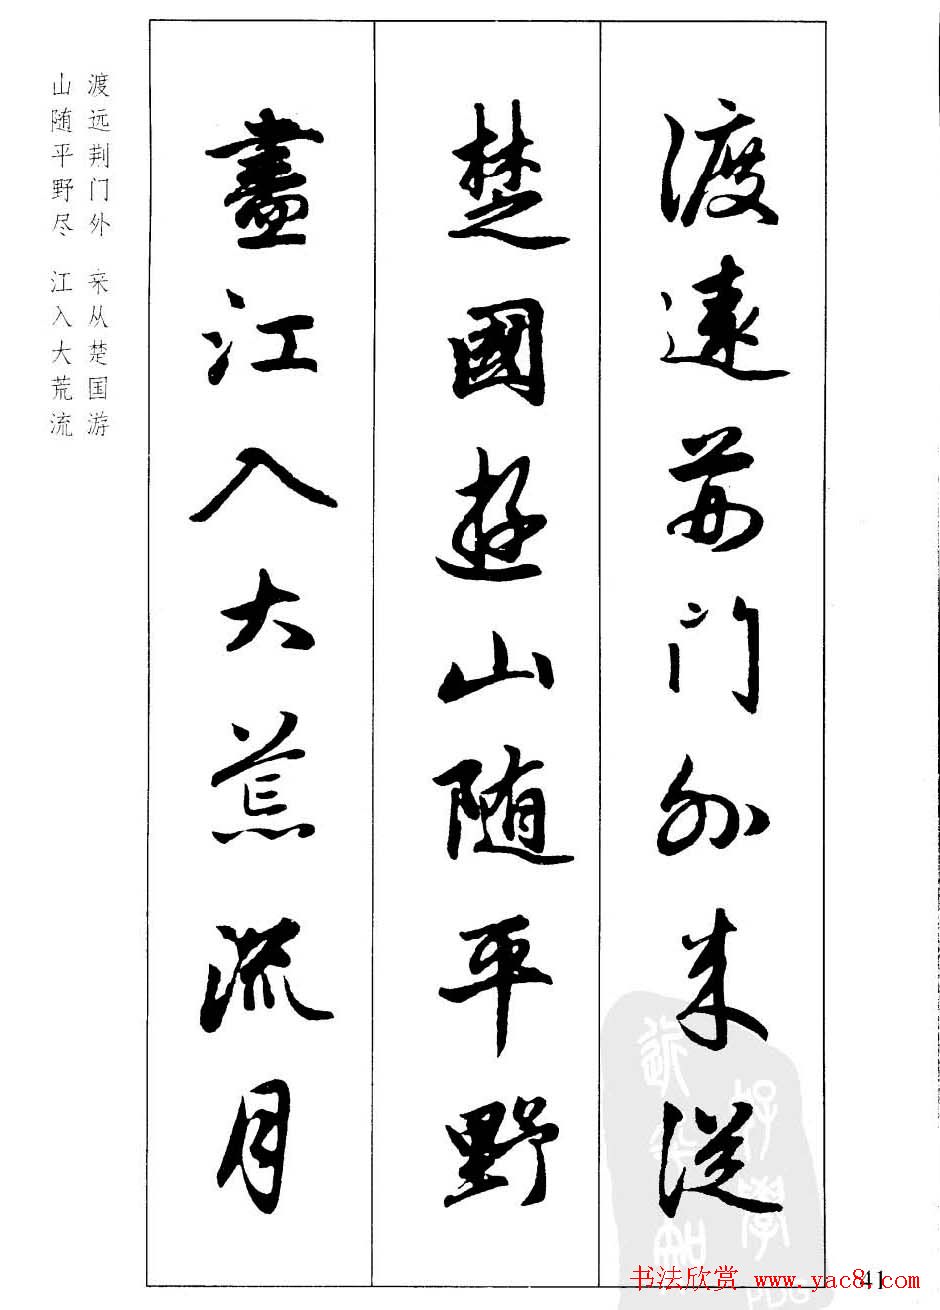 渡遠荆门外来從
楚國遊山随平野
盡江入大荒流月
渡远荆门外 来从楚国游
山随平野尽 江入大荒流
41
书法欣赏 www.yac8.com
PDG